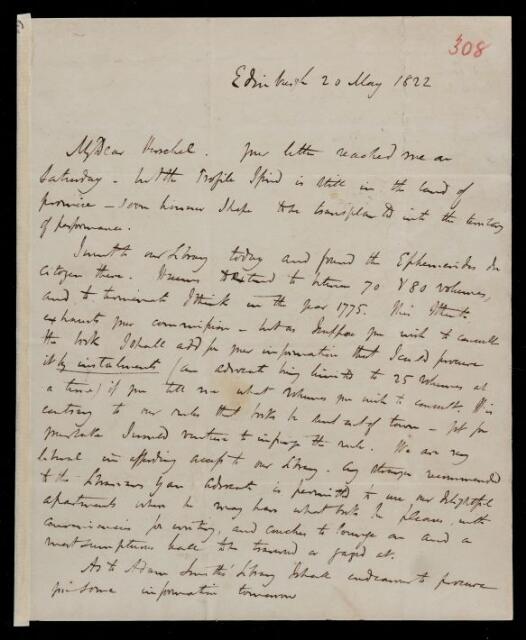 308
Edinburgh 20 May 1822
My Dear Herschel. Your letter reached me on
Saturday - but the Profile I find is still in the land of
promise - soon however I hope to be transplanted into the territory
of performance.
I went to our Library today and found the Ephemerides du
Citoyen there. It seems to extend to between 70 & 80 volumes,
and to terminate I think in the year 1775. This I think
exhausts your commission - but as I suppose you wish to consult
the book I shall add for your information that I could procure
it by instalments (an advocate being limited to 25 volumes at
a time) if you tell me what volumes you wish to consult. It is
contrary to our rules that books be sent out of town - yet for
your sake I would venture to infringe the rule. We are very
liberal in affording access to our Library. Any stranger recommended
to the Librarians by an Advocate is permitted to use our delightful
apartments where he may have what books he pleases, with
conveniences for writing, and couches to lounge on and a
most sumptuous hall to be traversed or gazed at.
As to Adam Smith's Library I shall endeavour to procure
you some information tomorrow